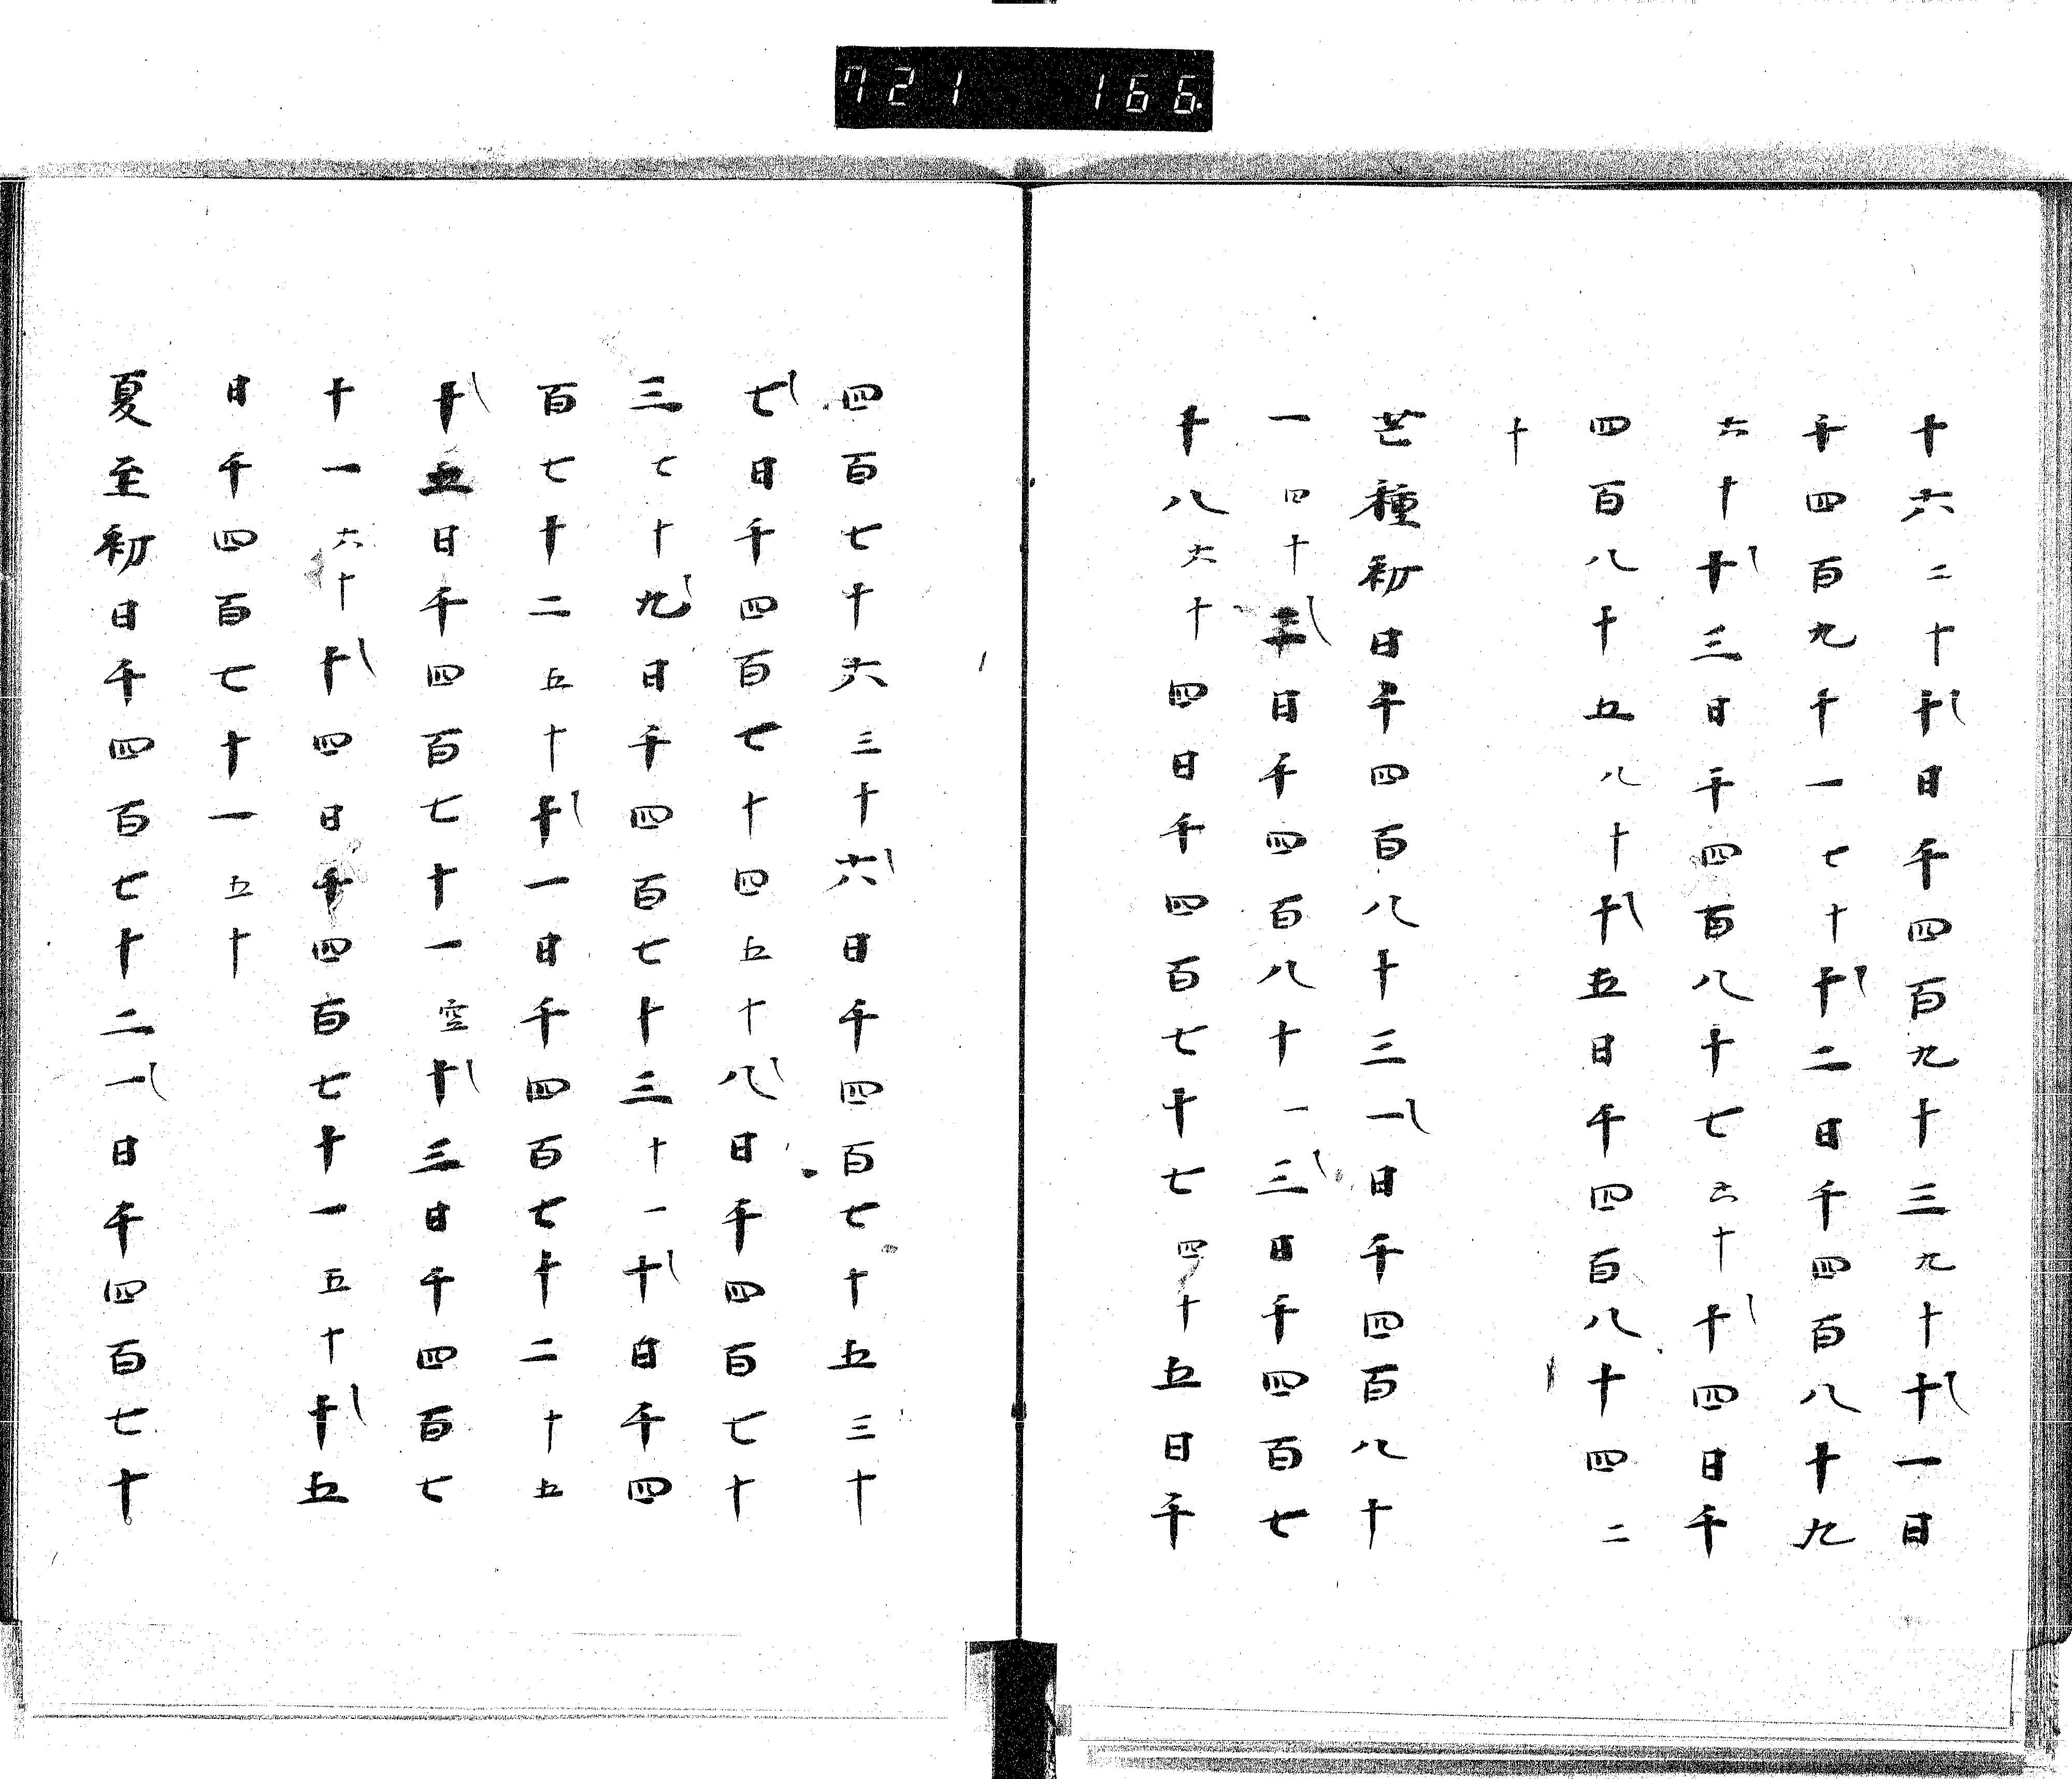 721 166
十六二十十日千四百九十三九十十一日
千四百九十一七十十二日千四百八十九
六十十三日千四百八十七六十十四日千
四百八十五八十十五日千四百八十四二
十
芒種初日千四百八十三一日千四百八十
一四十二日千四百八十一三日千四百七
十八六十四日千四百七十七四十五日千
四百七十六三十六日千四百七十五三十
七日千四百七十四五十八日千四百七十
三七十九日千四百七十三十一十日千四
百七十二五十十一日千四百七十二十五
十五日千四百七十一空十三日千四百七
十一六十十四日千四百七十一五十十五
日千四百七十一五十
夏至初日千四百七十二一日千四百七十